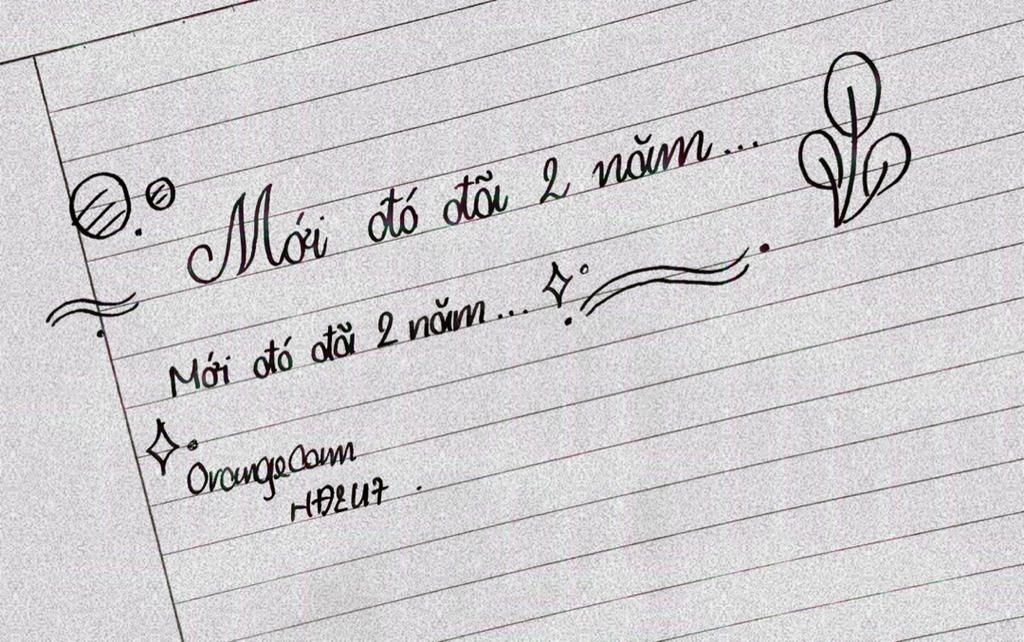 Mới đó đã 2 năm...
Mới đó đã 2 năm...
OrangeCam